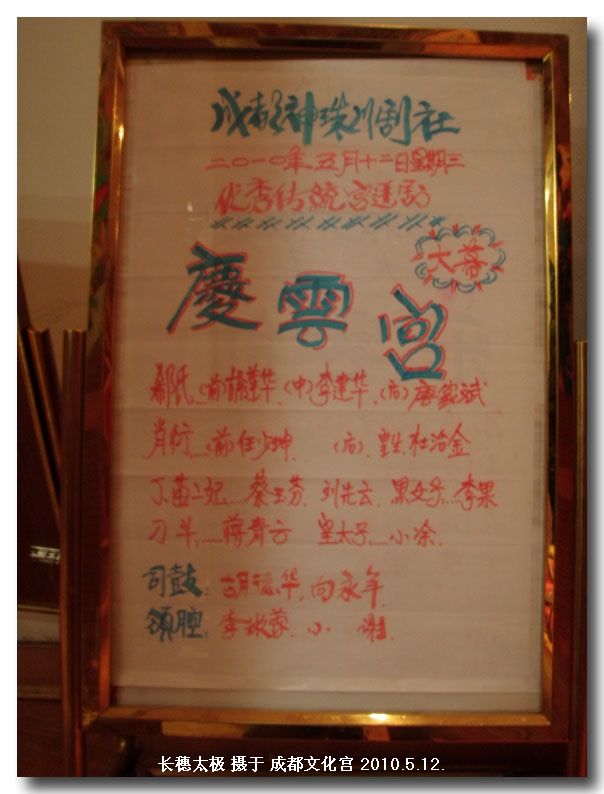 成都神珠川剧社
二〇一〇年五月十二日星期三
优秀传统宫廷剧
大幕
慶雲宮
郗氏……(前)胡莲华、(中)李建华、(后)唐家斌
肖衍……(前)坤 (后)皇生杜治金
丁、苗二妃……蔡玉芬、刘先云、黑女子……李果
刁羊……蒋青云 皇太子……小余.
司鼓:胡德华,向永年
领腔:李秋蓉、小 谢.
长穗太极 摄于 成都文化宫 2010.5.12.